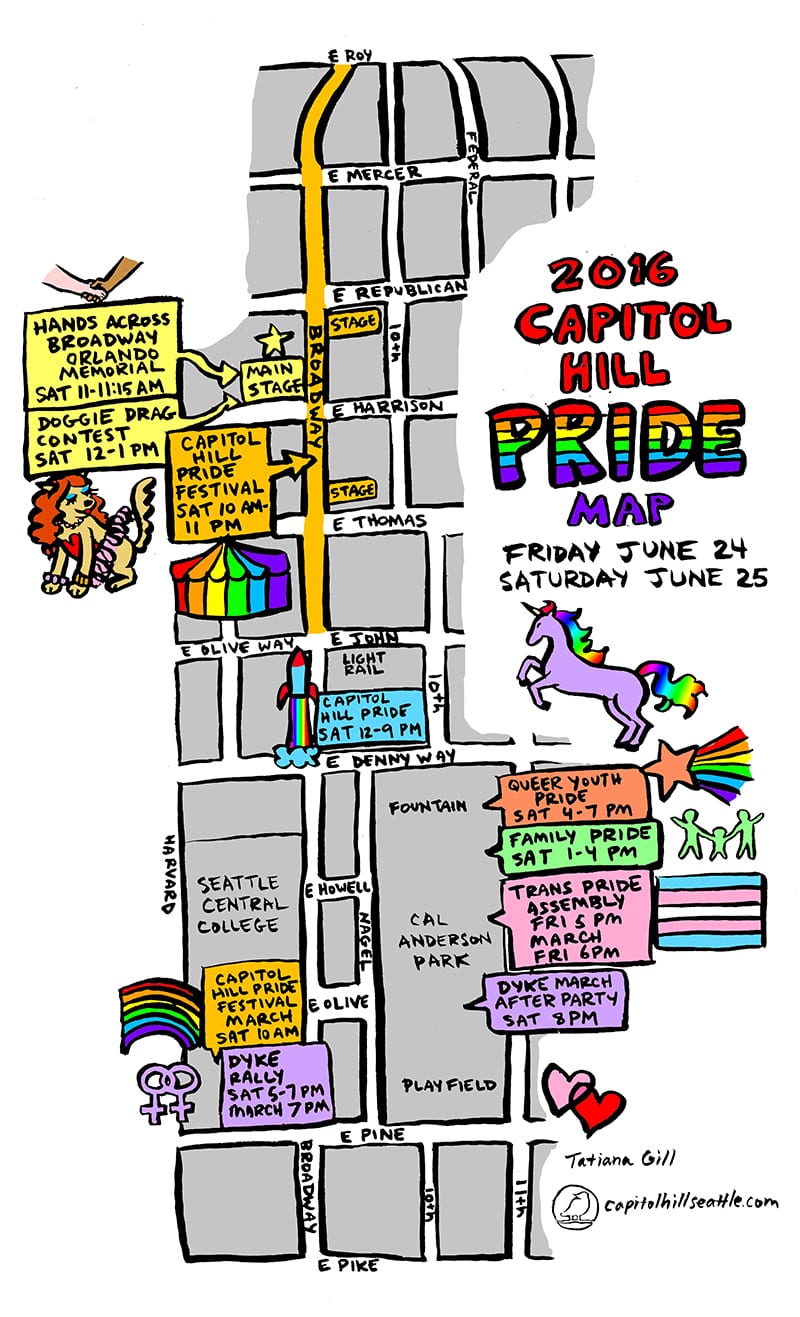 E ROY
FEDERAL
E MERCER
2016
CAPITOL
HILL
PRIDE
MAP
FRIDAY JUNE 24
SATURDAY JUNE 25
E REPUBLICAN
HANDS ACROSS
BROADWAY
ORLANDO
MEMORIAL
SAT 11-11:15 AM
DOGGIE DRAG
CONTEST
SAT 12-1 PM
MAIN
STAGE
BROADWAY
STAGE
10th
E HARRISON
CAPITOL
HILL
PRIDE
FESTIVAL
SAT 10 AM-
11 PM
STAGE
E THOMAS
E OLIVE WAY
E JOHN
LIGHT
RAIL
10th
CAPITOL
HILL PRIDE
SAT 12-9 PM
E DENNY WAY
HARVARD
FOUNTAIN
QUEER YOUTH
PRIDE
SAT 4-7 PM
FAMILY PRIDE
SAT 1-4 PM
SEATTLE
CENTRAL
COLLEGE
E HOWELL
NAGEL
CAL
ANDERSON
PARK
TRANS PRIDE
ASSEMBLY
FRI 5 PM
MARCH
FRI 6PM
CAPITOL
HILL PRIDE
FESTIVAL
MARCH
SAT 10 AM
E OLIVE
DYKE MARCH
AFTER PARTY
SAT 8PM
DYKE
RALLY
SAT 5-7 PM
MARCH 7 PM
PLAYFIELD
E PINE
BROADWAY
10th
11th
E PIKE
Tatiana Gill
capitolhillseattle.com